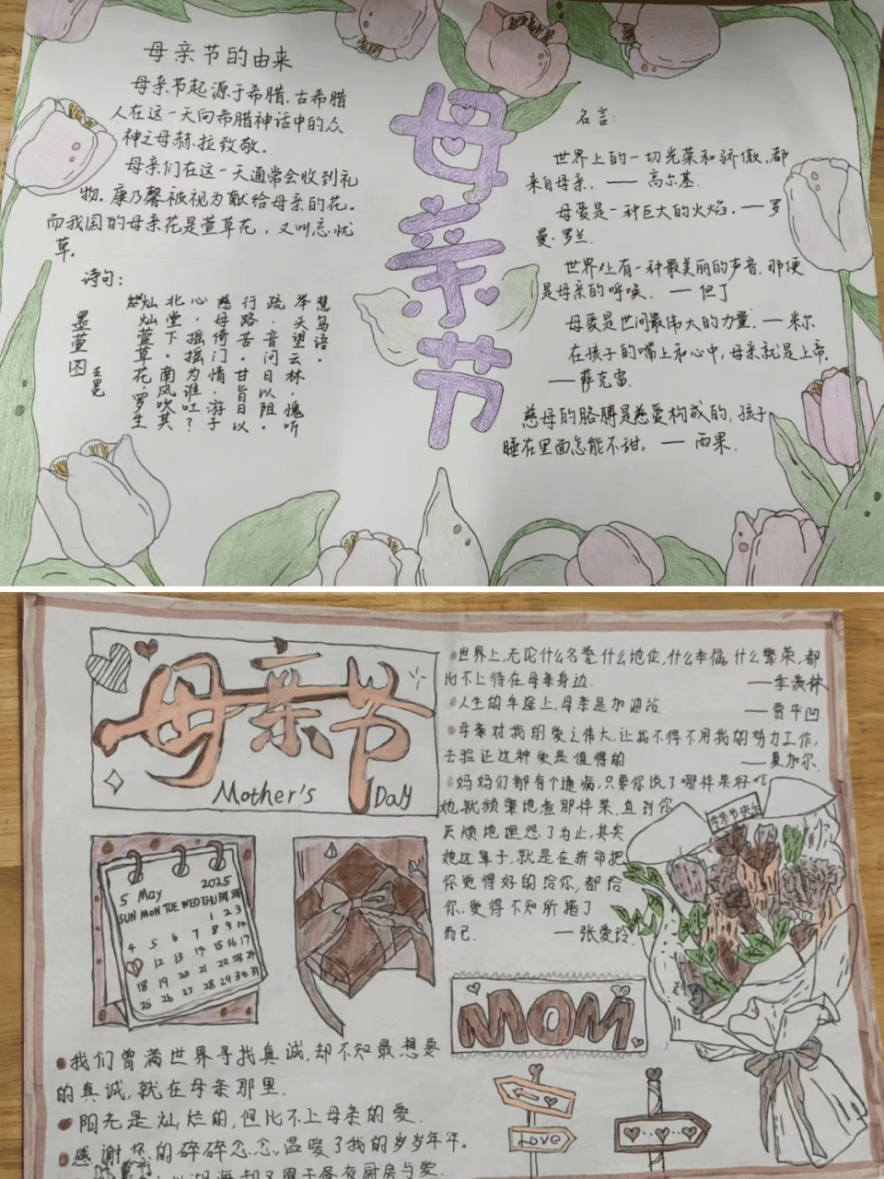 母亲节的由来
母亲节起源于希腊,古希腊
人在这一天向希腊神话中的众
神之母赫拉致敬。
母亲们在这一天通常会收到礼
物。康乃馨被视为献给母亲的花。
而我国的母亲花是萱草花,又叫忘忧
草。
诗句:
墨萱图
王冕
灿灿萱草花,罗生
北堂下。南风吹其
心,摇摇为谁吐?
慈母倚门情,游子
行路苦。甘旨日以
疏,音问日以阻。
举头望云林,愧听
慧鸟语。
母亲节
名言:
世界上的一切光荣和骄傲,都
来自母亲。——高尔基.
母爱是一种巨大的火焰。——罗
曼·罗兰.
世界上有一种最美丽的声音,那便
是母亲的呼唤。——但丁
母爱是世间最伟大的力量.——米尔
在孩子的嘴上和心中,母亲就是上帝.
——萨克雷.
慈母的胳膊是慈爱构成的,孩子
睡在里面怎能不甜。——雨果.
母亲节
Mother's Day
5 May 2025
SUN MON TUE WED THU
1 2 3
4 5 6 7 8 9 10
12 13 14 15 16 17
18 19 20 21 22 23 24
25 26 27 28 29 30 31
世界上,无论什么名誉,什么地位,什么幸福,什么繁荣,都
比不上待在母亲身边. ——季羡林
人生的车座上,母亲是加油站 ——贾平凹
母亲对我的爱之伟大,让我不得不用我的努力工作,
去验证这种爱是值得的 ——夏加尔.
妈妈们都有个通病,只要你说了哪样菜好吃
她就频繁地煮那样菜,直到你
厌烦地埋怨了为止,其实
她这辈子,就是在拼命把
你觉得好的给你,都给
你.爱得不知所措了
而已. ——张爱玲.
母亲节快乐
MOM
Love
我们曾满世界寻找真诚,却不知最想要
的真诚,就在母亲那里.
阳光是灿烂的,但比不上母亲的爱.
感谢您的碎碎念念,温暖了我的岁岁年年。
湖海,却又囿于昼夜厨房与爱.